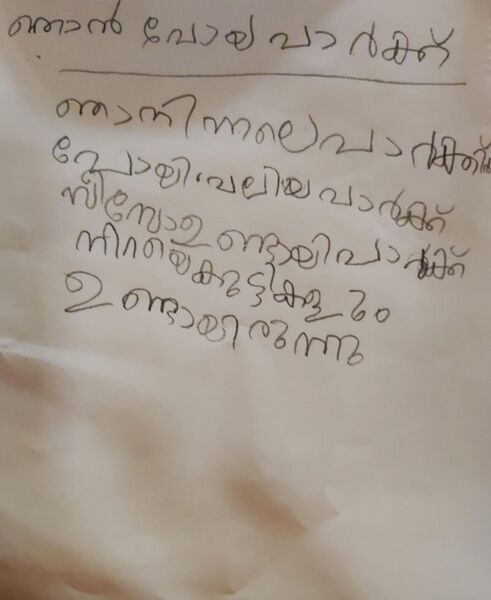 ഞാൻ പോയ പാർക്ക്
ഞാനിന്നലെ പാർക്കിൽ
പോയി വലിയ പാർക്ക്
ഉണ്ടായി പാർക്ക്
നിറയെ കുട്ടികളും
ഉണ്ടായിരുന്നു